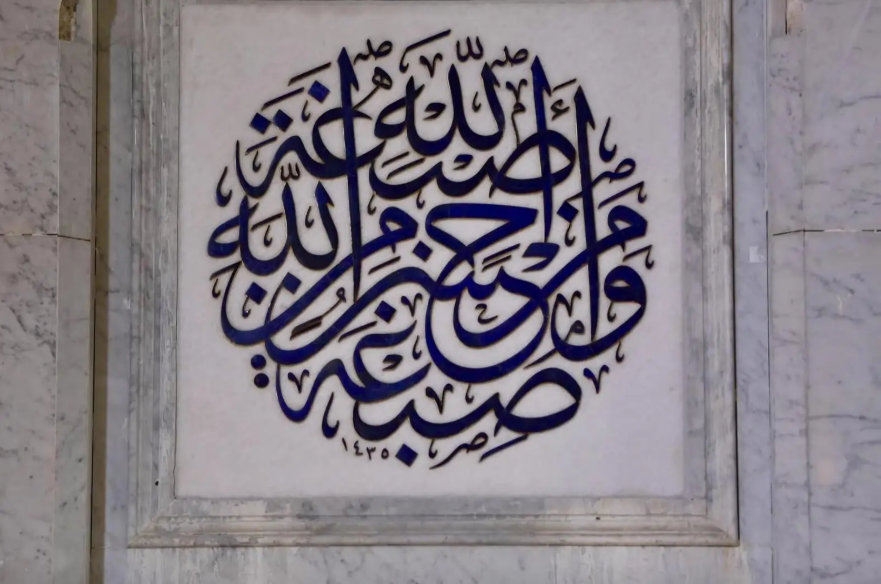 صِبْغَةَ اللَّهِ وَمَنْ أَحْسَنُ مِنَ اللَّهِ صِبْغَةً
١٤٣٥